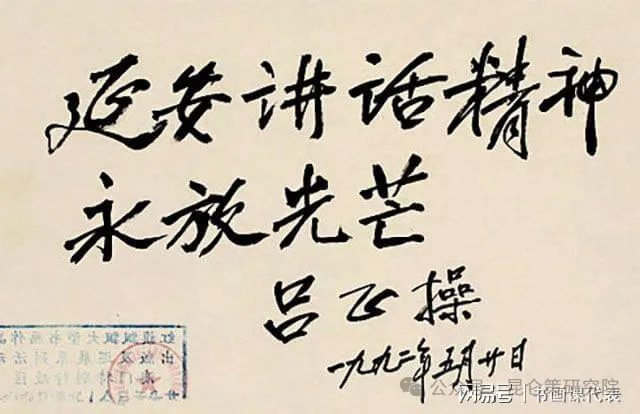 延安讲话精神
永放光芒
吕正操
一九九二年五月廿日
公众号 昆仑策研究院
网易号